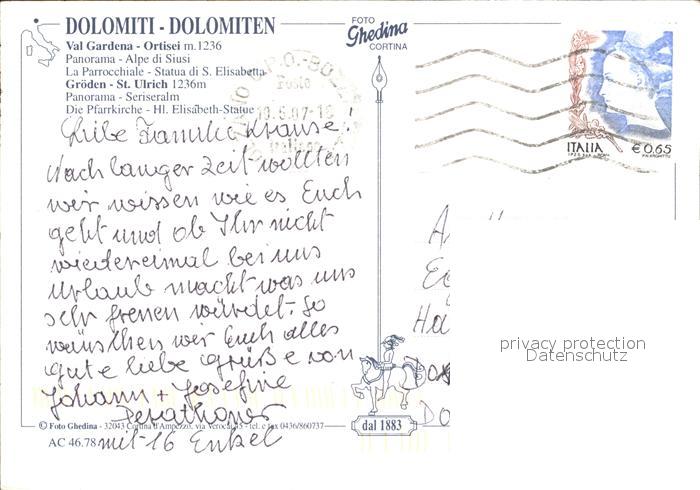 DOLOMITI - DOLOMITEN
Val Gardena - Ortisei m.1236
Panorama - Alpe di Siusi
La Parrocchiale - Statua di S. Elisabetta
Gröden - St. Ulrich 1236m
Panorama - Seriseralm
Die Pfarrkirche - Hl. Elisabeth-Statue
FOTO
Ghedina
CORTINA
ITALIA
€ 0,65
Liebe Familie Krause!
Nach langer Zeit wollten
wir wissen wie es Euch
geht und ob Ihr nicht
wiedereimal bei uns
Urlaub macht was uns
sehr freuen würdet. So
wünschen wir Euch alles
gute liebe Grüße von
Johann + Josefine
Perathoner
mit 16 Enkel
privacy protection
Datenschutz
dal 1883
© Foto Ghedina - 32043 Cortina d'Ampezzo, via - tel. e fax 0436/860737
AC 46.78